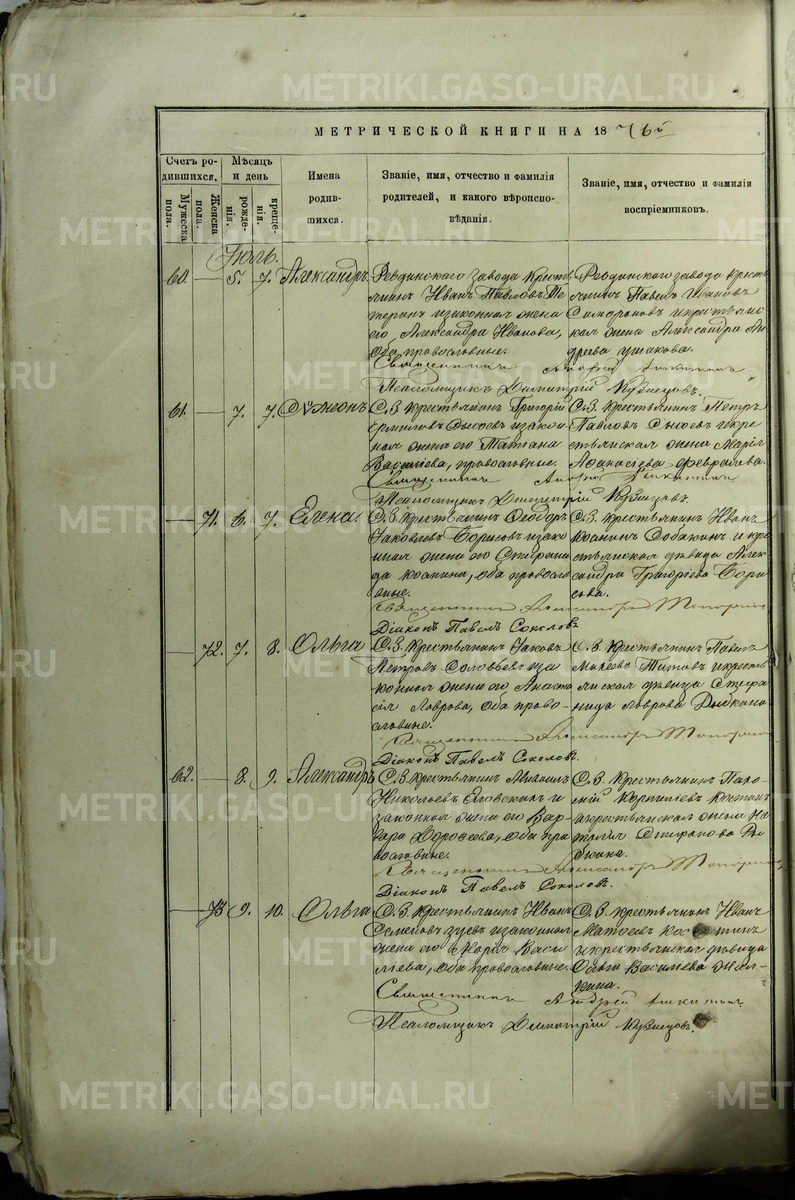 METRIKI.GASO-URAL.RU
МЕТРИЧЕСКОЙ КНИГИ НА 1876й
Счетъ ро-
дившихся.
Мужеска
пола.
Женска
пола.
Мѣсяцъ
и день
рожде-
нія.
креще-
нія.
Имена
родив-
шихся.
Званіе, имя, отчество и фамилія
родителей, и какого вѣроиспо-
вѣданія.
Званіе, имя, отчество и фамилія
воспріемниковъ.
Іюль.
60. — 5. 7. Александръ.
Ревдинскаго завода крест
янинъ Иванъ Павловъ
и законная жена
его, Александра Иванова,
оба православные.
Ревдинскаго завода кресть
янинъ Павелъ Ивановъ
и крестьянс
кая жена Александра Ан
дреева Ушакова.
Священникъ Андрей Никитинъ
Псаломщикъ Димитрій Кузнецовъ.
61. — 7. 7. Сѵмеонъ
С.З. крестьянинъ Григорій
Ермиловъ Сысоевъ и закон
ная жена его Татіана
Василіева, православные.
С.З. крестьянинъ Петръ
Павловъ Сысоевъ и кре
стьянская жена Марія
Аѳанасіева Февралева.
Священникъ Андрей Никитинъ
Псаломщикъ Димитрій Кузнецовъ.
— 71. 6. 7. Елена.
С.З. крестьянинъ Ѳеодоръ
Яковлевъ Борисовъ и зако
нная жена его Стефани
да Космина, оба православ
ные.
С.З. крестьянинъ Иванъ
Косминъ Собакинъ и кре
стьянская дѣвица Алек
сандра Григоріева Бори
сова.
Священникъ Александръ Топорковъ
Діаконъ Павелъ Соколовъ
— 72. 7. 8. Ольга
С.З. крестьянинъ Яковъ
Петровъ Соловьевъ и за
конная жена его Анаста
сія Лаврова, оба право-
славные.
С.З. крестьянинъ Павелъ
Михеевъ Титовъ и кресть
янская дѣвица Стефа
нида Лаврова Рыбкина
Священникъ Александръ Топорковъ
Діаконъ Павелъ Соколовъ.
62. — 8. 9. Александръ
С.З. крестьянинъ Михаилъ
Николаевъ Еловскихъ и
законная жена его Вар-
вара Дороѳеева, оба пра
вославные.
С.З. крестьянинъ Пар-
ѳеній Корниліевъ Костинъ
и крестьянская жена На
талія Стефанова Ры
бкина.
Священникъ Александръ Топорковъ
Діаконъ Павелъ Соколовъ.
— 73 9. 10. Ольга
С.З. крестьянинъ Иванъ
Семеновъ Зуевъ и законная
жена его Марія Васи
ліева, оба православные.
С.З. крестьянинъ Иванъ
Матѳеевъ Костинъ
и крестьянская дѣвица
Василіева
Священникъ Андрей Никитинъ
Псаломщикъ Димитрій Кузнецовъ.